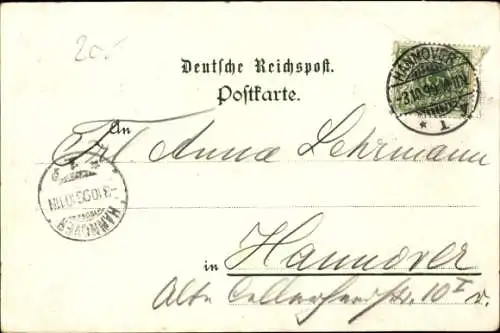 20.-
Deutsche Reichspost.
Postkarte.
HANNOVER
1
An
Frl. Anna Lehrmann
HANNOVER
in Hannover
Alte Cellerheerstr. 10 I v.